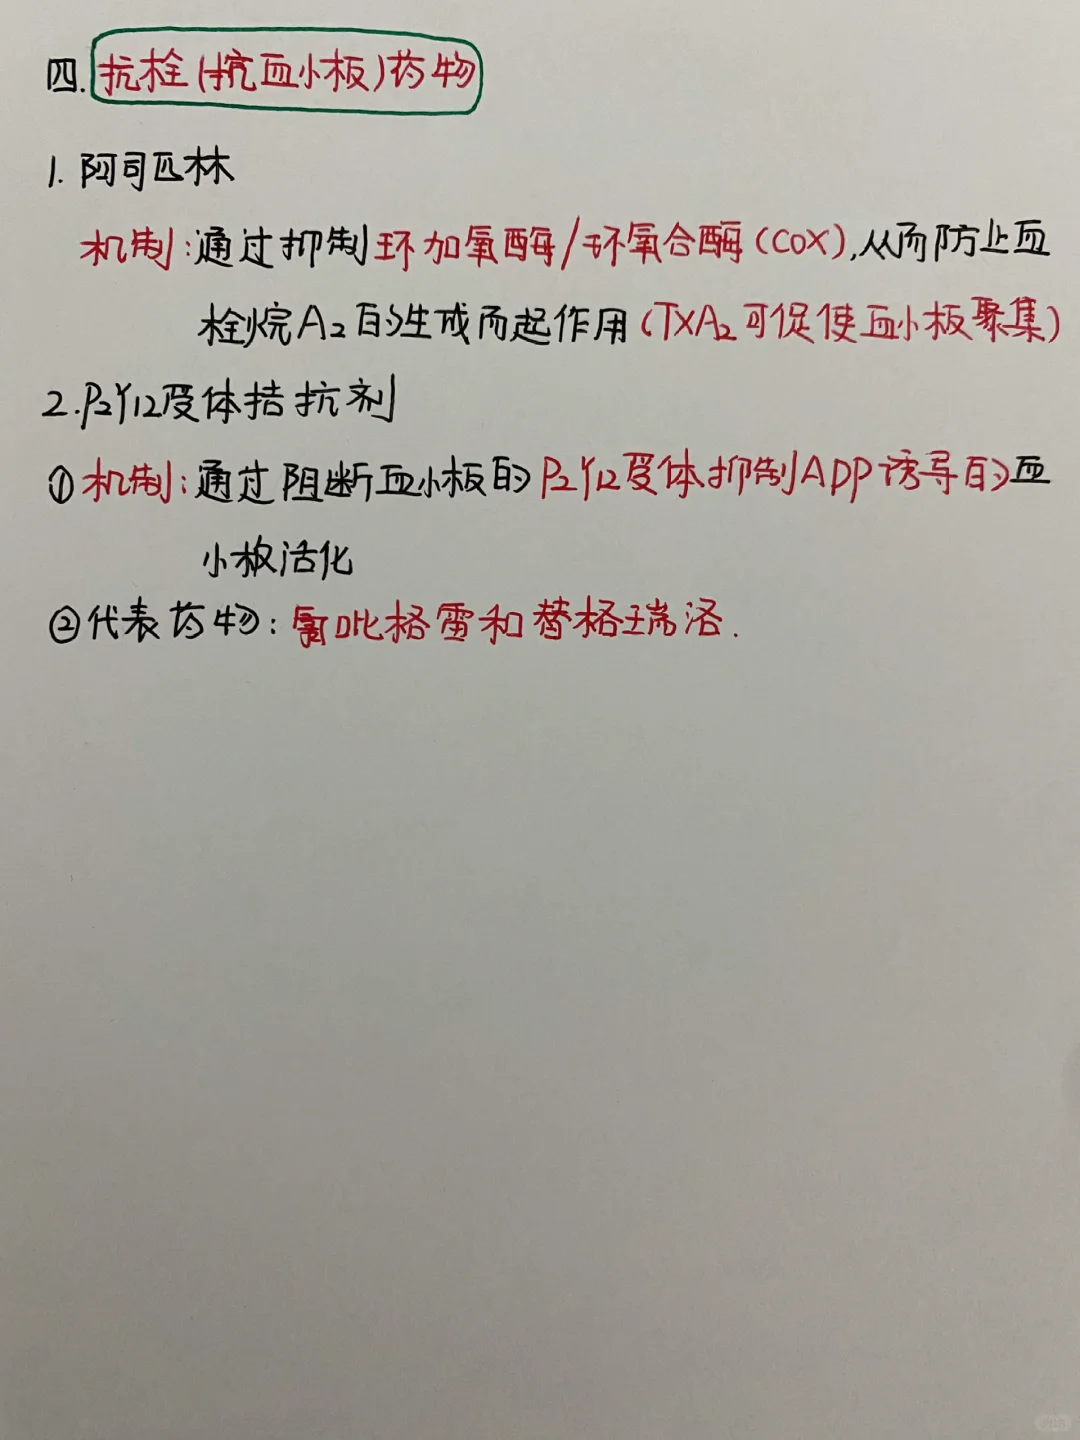 四.抗栓(抗血小板)药物
1.阿司匹林
机制:通过抑制环加氧酶/环氧合酶(COX),从而防止血
栓烷A₂的生成而起作用(TXA₂可促使血小板聚集)
2.P₂Y12受体拮抗剂
①机制:通过阻断血小板的P₂Y12受体抑制ADP诱导的血
小板活化
②代表药物:氯吡格雷和替格瑞洛.